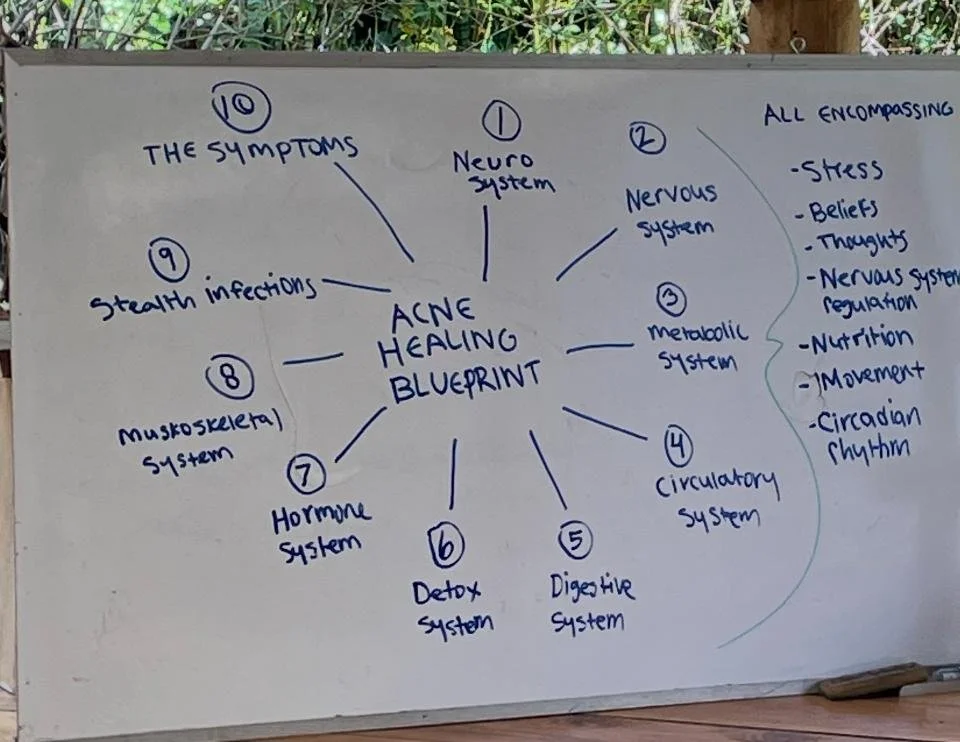 ACNE
HEALING
BLUEPRINT
①
Neuro
system
②
Nervous
system
③
metabolic
system
④
Circulatory
system
⑤
Digestive
system
⑥
Detox
system
⑦
Hormone
system
⑧
muskoskeletal
system
⑨
Stealth infections
⑩
THE SYMPTOMS
ALL ENCOMPASSING
-Stress
-Beliefs
-Thoughts
-Nervous system
regulation
-Nutrition
-Movement
-Circadian
rhythm